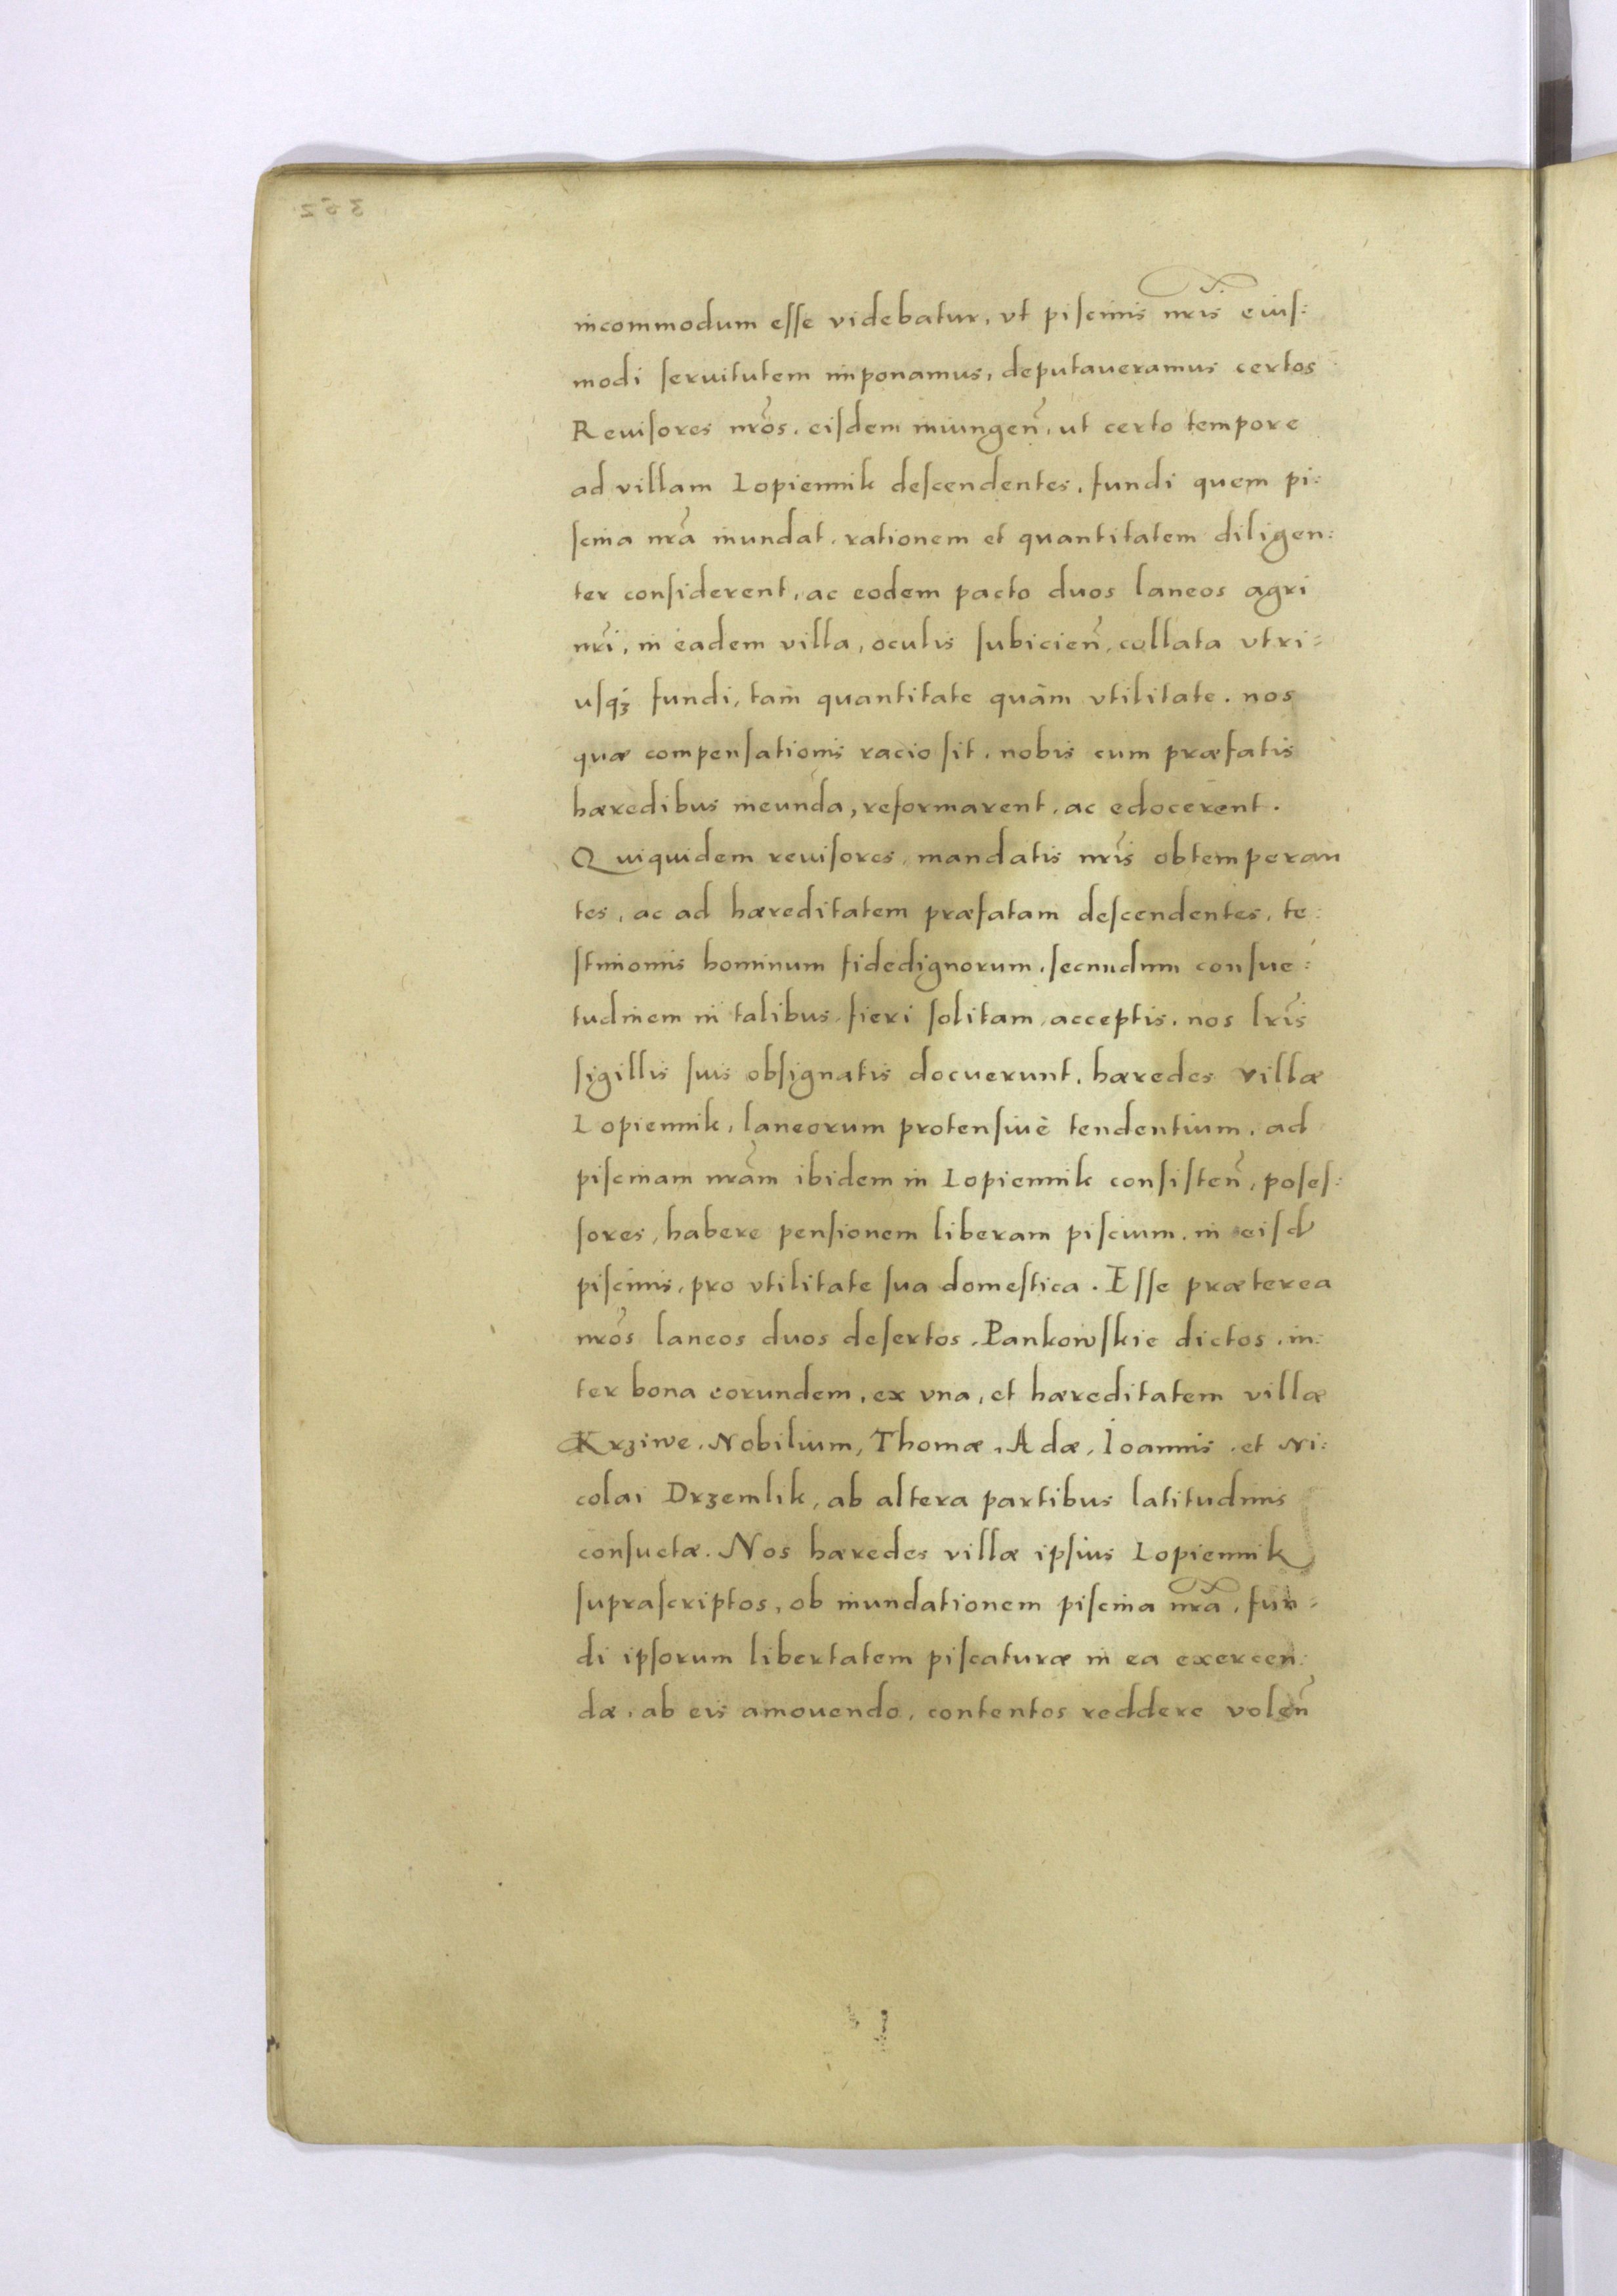 incommodum esse videbatur, vt piscinis nr̃is eius:
modi seruitutem imponamus, deputaueramus certos
Reuisores nr̃os, eisdem iniungeñ, ut certo tempore
ad villam Lopiennik descendentes, fundi quem pi:
scina nr̃a inundat, rationem et quantitatem diligen:
ter considerent, ac eodem pacto duos laneos agri
nr̃i, in eadem villa, oculis subicieñ, collata vtri=
usq́ꝫ fundi, tam̃ quantitate quàm vtilitate. nos
quæ compensationis racio sit, nobis cum præfatis
hæredibus ineunda, reformarent, ac edocerent.
Quiquidem reuisores, mandatis nr̃is obtemperan
tes, ac ad hæreditatem præfatam descendentes, te:
stimoniis hominum fidedignorum, secundum consue:
tudinem in talibus fieri solitam, acceptis, nos lr̃is
sigillis suis obsignatis docuerunt, hæredes villæ
Lopiennik, laneorum protensiuè tendentium, ad
piscinam nr̃am ibidem in Lopiennik consisteñ, poses:
sores, habere pensionem liberam piscium, in eisd
piscinis, pro vtilitate sua domestica. Esse præterea
nr̃os laneos duos desertos, Pankowskie dictos, in:
ter bona eorundem, ex vna, et hæreditatem villæ
Krziwe, Nobilium, Thomæ, Adæ, Ioannis, et Ni:
colai Drzemlik, ab altera partibus latitudinis
consuetæ. Nos hæredes villæ ipsius Lopiennik
suprascriptos, ob inundationem piscina nr̃a, fun=
di ipsorum libertatem piscaturæ in ea exercen:
dæ, ab eis amouendo, contentos reddere voleñ